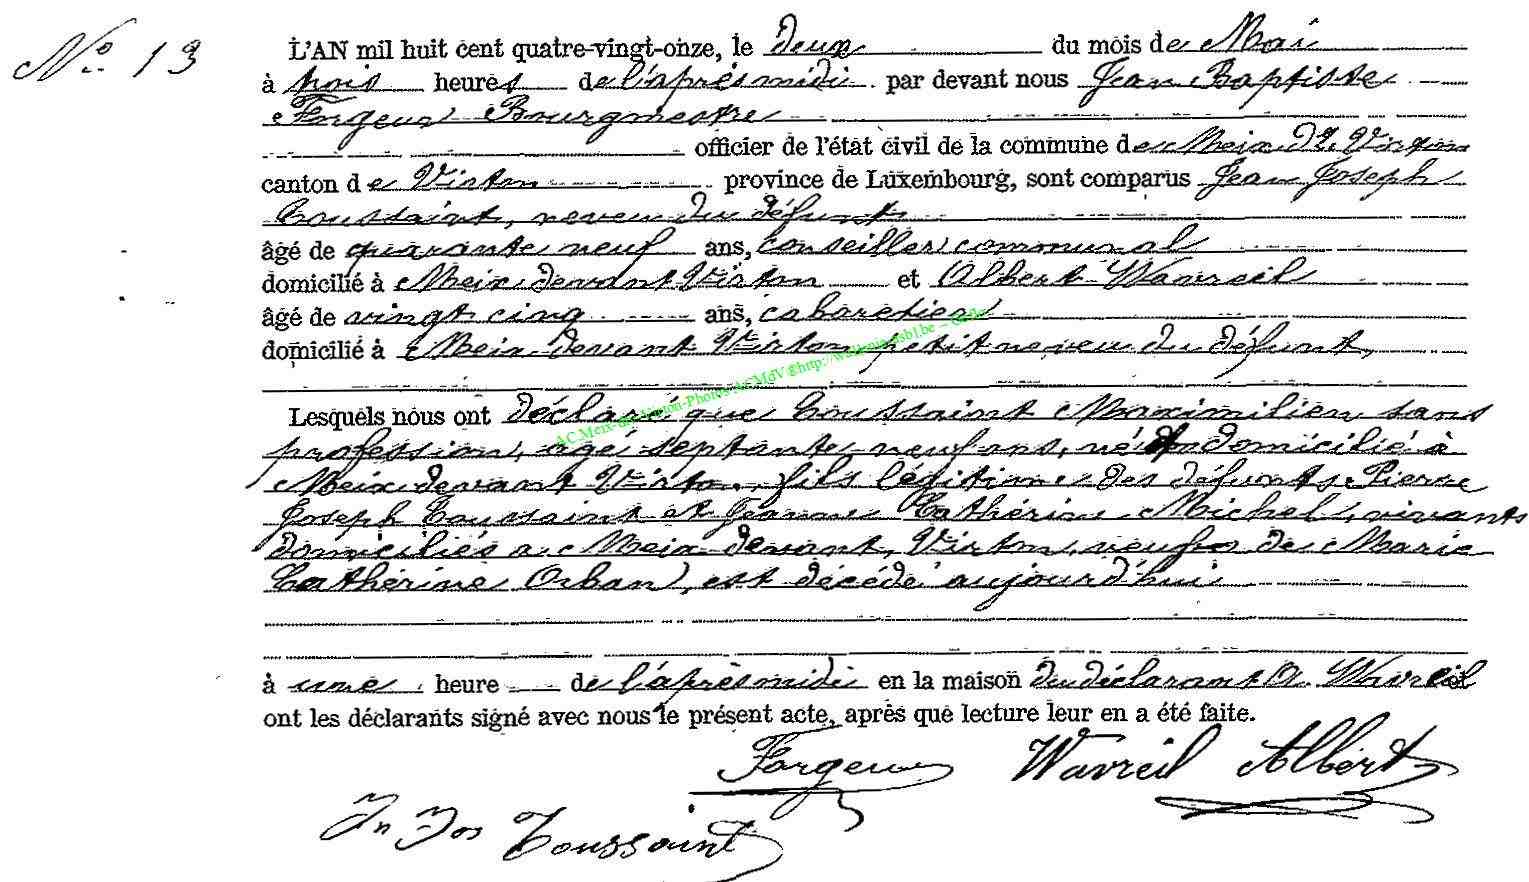 N° 13
L'AN mil huit cent quatre-vingt-onze, le deux du mois de Mai
à trois heures de l'après midi par devant nous Jean Baptiste
Forgeur Bourgmestre
officier de l'état civil de la commune de Meix dt Virton
canton de Virton province de Luxembourg, sont comparus Jean Joseph
Toussaint, neveu du défunt
âgé de quarante neuf ans, conseiller communal
domicilié à Meix devant Virton et Albert Wavreil
âgé de vingt cinq ans, cabaretier
domicilié à Meix devant Virton petit neveu du défunt,
Lesquels nous ont déclaré que Toussaint Maximilien sans
profession, agé septante neuf ans, né et domicilié à
Meix devant Virton, fils légitime des défunts Pierre
Joseph Toussaint et Jeanne Cathérine Michel, vivants
domiciliés a Meix devant Virton, veuf de Marie
Cathérine Orban, est décédé aujourd'hui
à une heure de l'après midi en la maison du déclarant A. Wavreil
ont les déclarants signé avec nous le présent acte, après que lecture leur en a été faite.
Forgeur Wavreil Albert
Jn Jos Toussaint